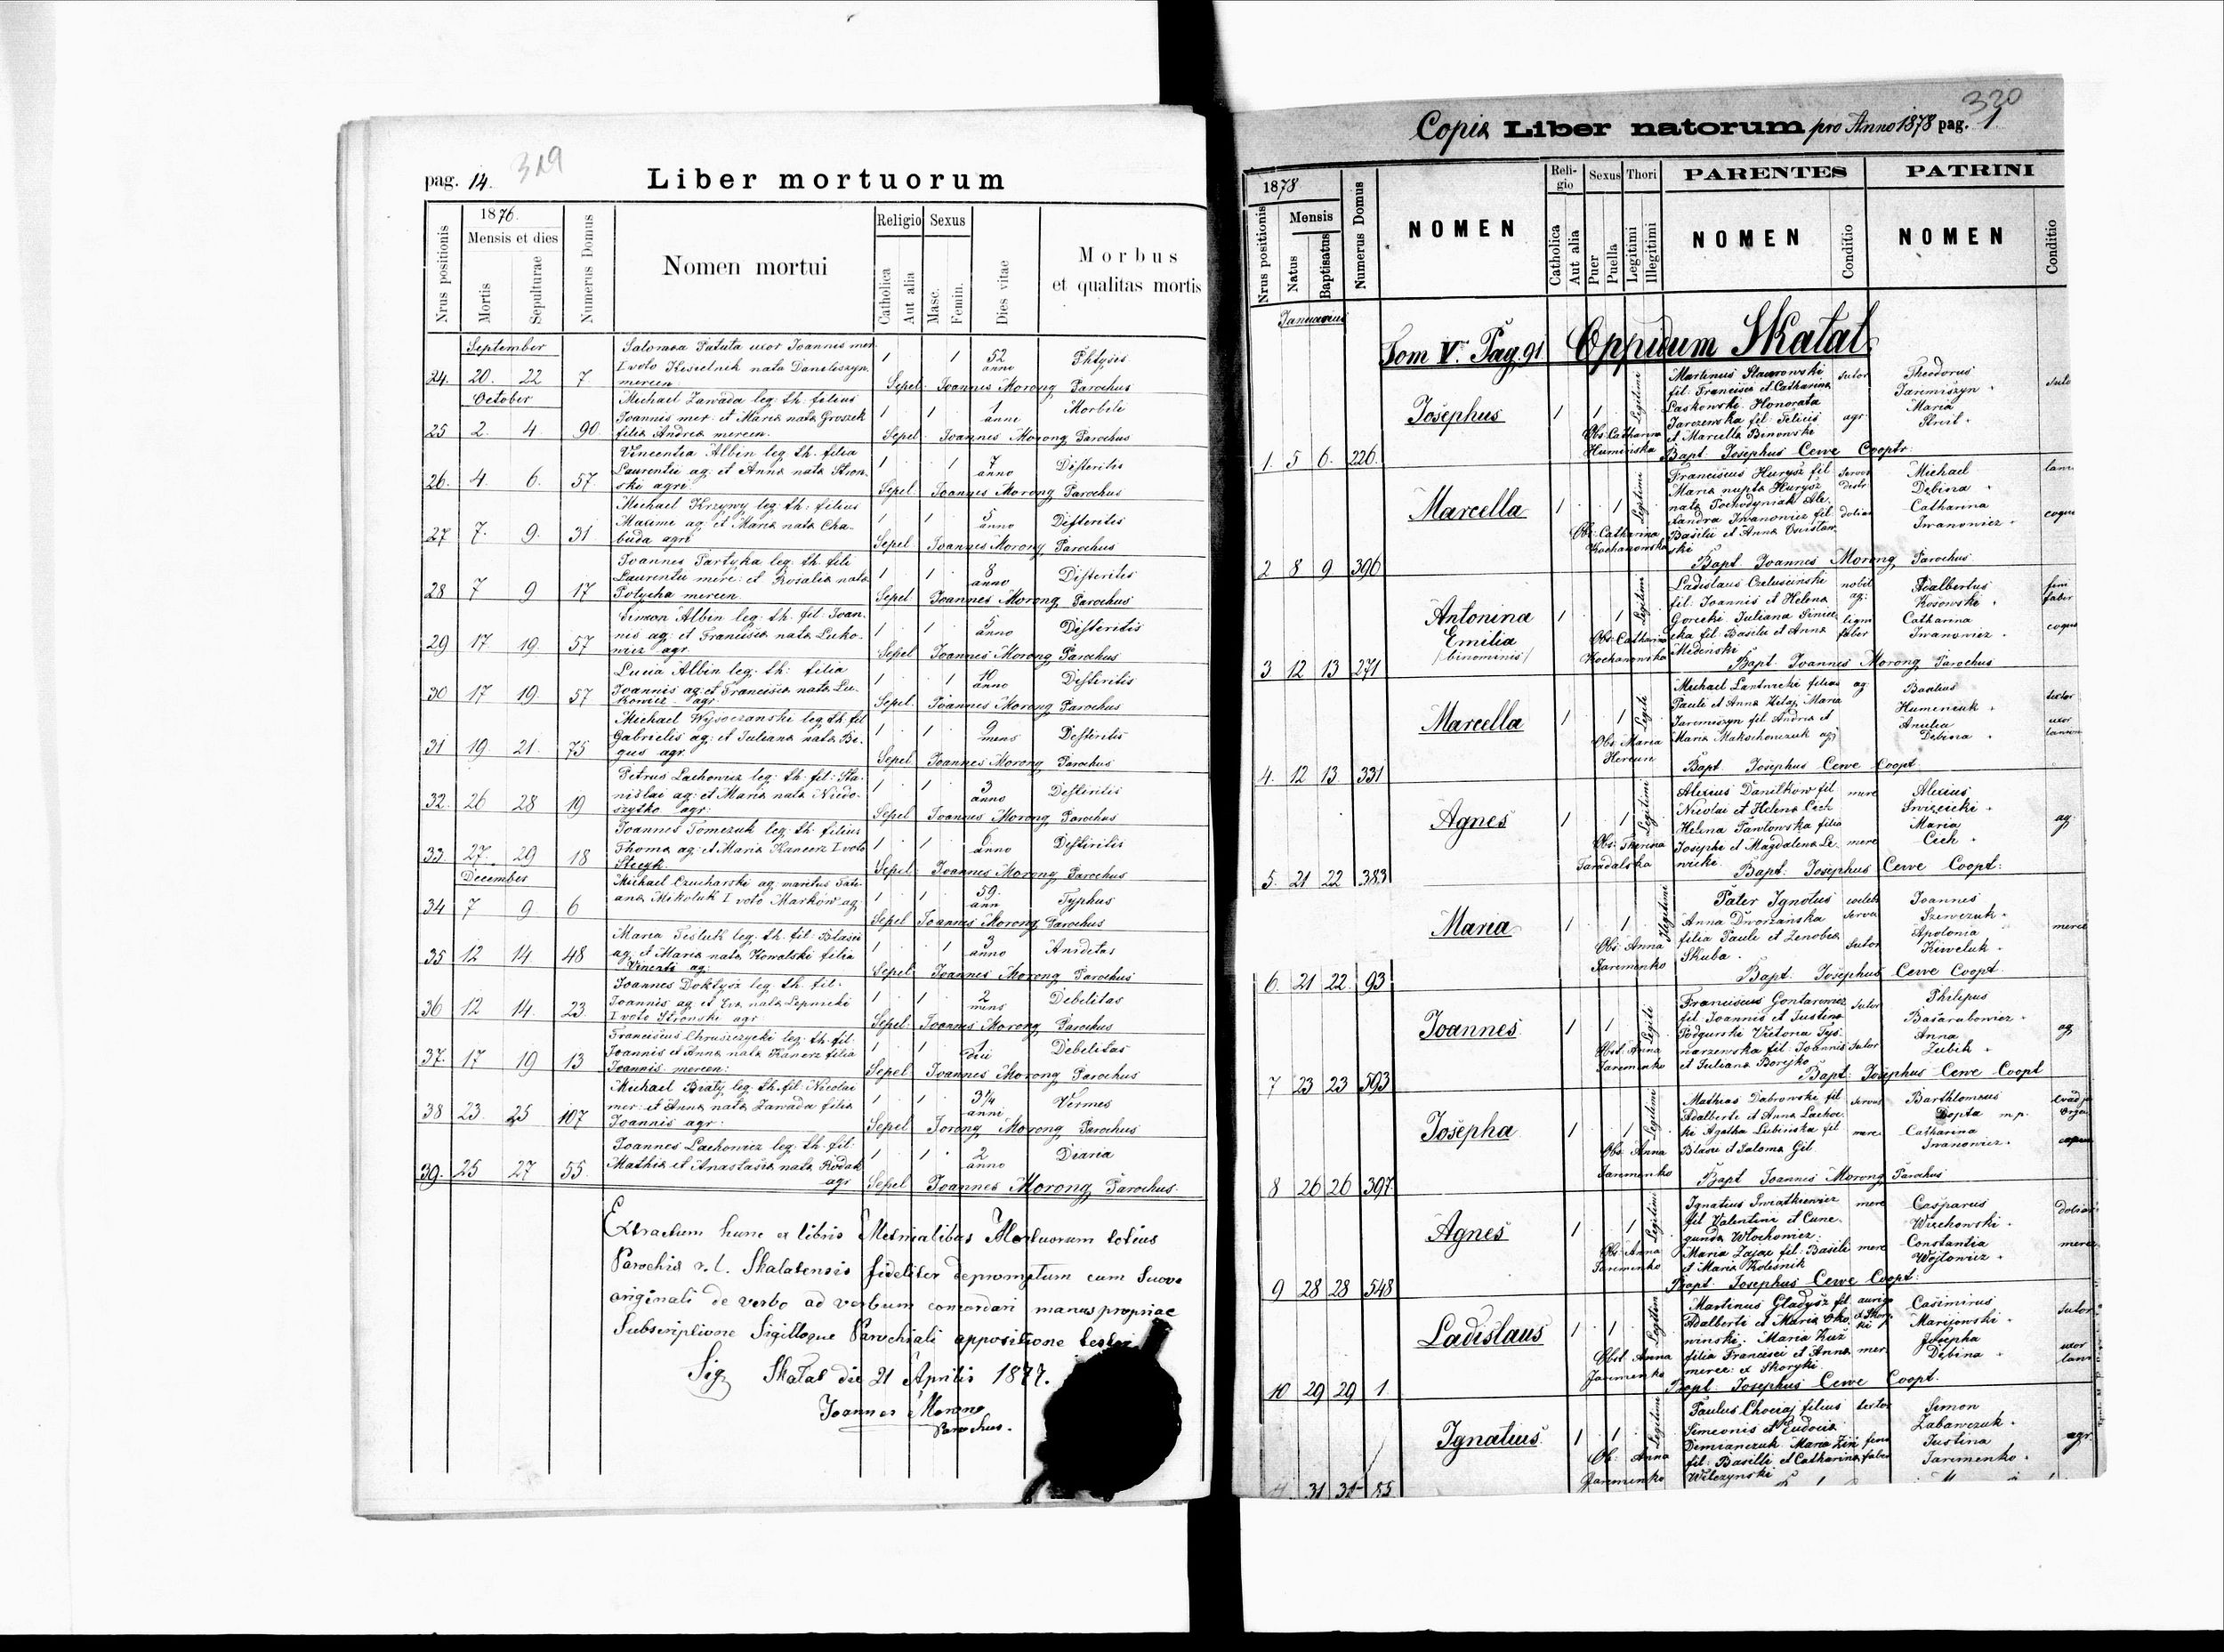 pag. 14.
319
Liber mortuorum
Nrus positionis
1876.
Mensis et dies
Mortis
Sepulturae
Numerus Domus
Nomen mortui
Religio
Catholica
Aut alia
Sexus
Masc.
Femin.
Dies vitae
Morbus
et qualitas mortis
September
24. 20. 22 7.
Salomea Patuta uxor Joannis mer.
I voto Kisielnik nata Daniliszyn
mercen.
1 1 52 anno Phtysis
Sepel. Joannes Morong Parochus
October
25 2. 4. 90.
Michael Zawada leg. th. filius
Joannis mer. et Maria nata Groszek
filia Andrea mercen.
1 1 1 anni Morbili
Sepel. Joannes Morong Parochus
26. 4. 6. 57.
Vincentia Albin leg. th. filia
Laurentii ag. et Anna nata Stron-
ski agri
1 1 7 anno Difteritis
Sepel. Joannes Morong Parochus
27 7. 9. 31
Michael Krzywy leg. th. filius
Maximi ag. et Maria nata Cha-
buda agri
1 1 5 anno Difteritis
Sepel Joannes Morong Parochus
28 7 9 17
Joannes Partyka leg. th. fili
Laurentii merc. et Rosalia nata
Potycha mercen
1 1 8 anno Difteritis
Sepel Joannes Morong Parochus
29 17. 19. 57
Simon Albin leg. th. fil. Joan-
nis ag. et Francisca nata Luko-
wicz agr.
1 1 5 anno Difteritis
Sepel Joannes Morong Parochus
30 17 19. 57
Lucia Albin leg. th: filia
Joannis ag. et Francisca nata Lu-
kowicz agr.
1 1 10 anno Difteritis
Sepel. Joannes Morong Parochus
31 19. 21. 75
Michael Wysoczanski leg. th. fil
Gabrielis ag. et Juliana nata Bi-
gus agr.
1 1 9 mens Difteritis
Sepel Joannes Morong Parochus
32. 26 28 19
Petrus Lachowicz leg. th. fil: Sta-
nislai ag. et Maria nata Niedo-
szytko agr:
1 1 3 anno Difteritis
Sepel Joannes Morong Parochus
33. 27. 29 18
Joannes Tomczuk leg. th. filius
Thoma ag. et Maria Kancerz I voto
1 1 6 anno Difteritis
Sepel Joannes Morong Parochus
December
34 7 9 6
Michael Czucharski ag. maritus Tati-
ana Mikoluk I voto Markow ag.
1 1 59. ann Typhus
Sepel Joannes Morong Parochus
35 12 14. 48
Maria Testuk leg. th. fil. Blasii
ag. et Maria nata Kowalski filia
Vincenti ag.
1 1 3 anno
Sepel. Joannes Morong Parochus
36 12 14. 23.
Joannes Doktysz leg. th. fil.
Joannis ag. et Eva nata Lepnicki
I voto Stronski agr.
1 1 2 mens Debelitas
Sepel Joannes Morong Parochus
37. 17 19 13
Franciscus Chruszczycki leg. th. fil.
Joannis et Anna nata Kancrz filia
Joannis mercen:
1 1 1 diei Debelitas
Sepel. Joannes Morong Parochus
38 23. 25 107
Michael Biały leg. th. fil: Nicolai
mer. et Anna nata Zawada filia
Joannis agr.
1 1 3 1/4 anni Vermes
Sepel Jorong Morong Parochus
39. 25 27 55.
Joannes Lachowicz leg. th. fil.
Mathia et Anastasia nata Rodak
agr
1 1 2 anno Diaria
Sepel Joannes Morong Parochus.
Extractum hunc ex libris Metricalibus Mortuorum totius
Parochia r. l. Skalatensis fideliter depromptum cum suovo
originali de verbo ad verbum concordari manus propriae
Subscriptione Sigilloque Parochiali appositione testor
Sig Skalat die 21 Aprilis 1877.
Joannes Morong
Parochus.
320
Copia Liber natorum pro Anno 1878 pag. 1.
Nrus positionis
1878
Mensis
Natus
Baptisatus
Numerus Domus
NOMEN
Religio
Catholica
Aut alia
Sexus
Puer
Puella
Thori
Legitimi
Illegitimi
PARENTES
NOMEN
Conditio
PATRINI
NOMEN
Conditio
Januarius
Tom V. Pag. 91 Oppidum Skalat
1. 5 6. 226.
Josephus
1 1 Legitimi
Obs: Catharina
Huminska
Martinus Stawrowski sutor
fil. Francisci et Catharina
Laskowski. Honorata
Jarczewska fil. Felicis agr.
et Marcella Binowski
Theodorus
Jaremiszyn
Maria
Bapt. Josephus Cewe Cooptr
2 8 9 396
Marcella
1 1 Legitimi
Obs: Catharina
Kochanowska
Franciscus Hurysz fil.
Maria nupta Hurysz
Michael
Dębina
Catharina
Iwanowicz
Bapt Joannes Morong Parochus
3 12 13 271
Antonina
Emilia
/binominis/
1 1 Legitimi
Obs: Catharina
Kochanowska
fil: Joannis et Helena
Gorecki. Juliana
cka fil: Basilii et Anna
Adalbertus
Kosowski
Catharina
Iwanowicz
faber
Bapt. Joannes Morong Parochus
4. 12 13 331
Marcella
1 1
Obs: Maria
Hercun
Jaremiszyn fil. Andrea et
Basilius
Humeniuk
Dębina
Bapt Josephus Cewe Coopt.
5. 21 22 383
Agnes
1 1 Legitimi
Alexius Danilkow fil. merc
Nicolai et Helena Cich
Helena Pawlowska filia
Josephi et Magdalena Le- merc
wicki.
Alexius
Maria
Cich
ag.
Bapt. Josephus Cewe Coopt:
6. 21 22. 93
Maria
1 1 Illegitimi
Obs: Anna
Jaremenko
Pater Ignotus
Anna Dworzanska serva
filia Pauli et Zenobia
Skuba.
Joannes
Szewczuk
Apolonia
Kiweluk
Bapt. Josephus Cewe Coopt.
7 23 23 593
Joannes
1 1
Obst: Anna
Jaremenko
Franciscus Gontarewicz sutor
fil. Joannis et Justina
Podgurski Victoria Tys-
narzewska fil: Joannis sutor
et Juliana Borejko
Philipus
Basarabowicz
Anna
Zubik
ag
Bapt: Josephus Cewe Coopt
8 26 26 397
Josepha
1 1 Legitimi
Obs: Anna
Jaremenko
Mathias Dabrowski fil servus
Adalberti et Anna Lachoc-
ki Agatha Lubinska fil merc
Blasii et Saloma Gil
Barthlomeus
Catharina
Iwanowicz
Bapt Joannes Morong Parochus
9 28 28 548
Agnes
1 1 Legitimi
Obs: Anna
Jaremenko
Ignatius Swiatkiewicz merc
fil Valentini et Cune-
gunda Wlochowicz.
Maria Zajac fil: Basili merc
et Maria Kolisnik
Casparus
Wizchowski
Constantia
Wojtowicz
Bapt. Josephus Cewe Coopt.
10 29 29 1.
Ladislaus
1 1 Legitimi
Obst: Anna
Jaremenko
Martinus Gladysz fil. auriga
Adalberti et Maria Oko-
winski. Maria Kuz
filia Francisci et Anna mer.
merce: et Skoryki
Casimirus
Marijowski
Josepha
Dębina
sutor
uxor
Bapt Josephus Cewe Coopt.
31 31 85
Ignatius
1 1 Legitimi
Ob: Anna
Jaremenko
Paulus Chocaj filius
Simeonis et Eudocia
Demianczuk Maria
fil: Basilii et Catharina faber
Wilczynski
Simon
Zabawczuk
Justina
Jaremenko
agr.